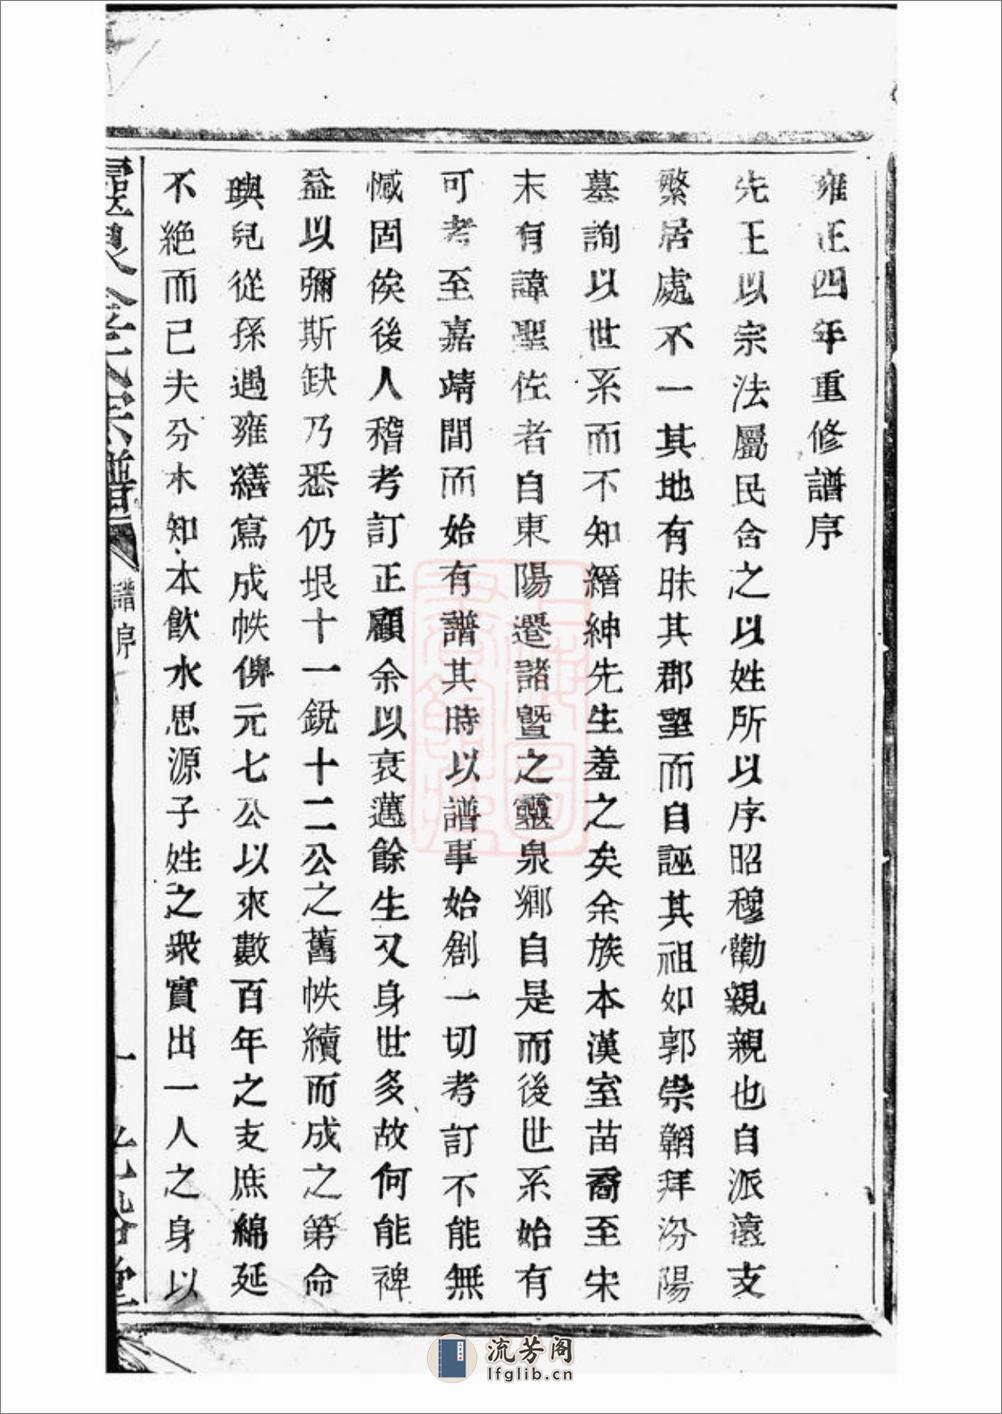 雍正四年重修譜序
先王以宗法屬民合之以姓所以序昭穆勸親親也自派遠支
繁居處不一其地有昧其郡望而自誣其祖如郭崇韜拜汾陽
墓詢以世系而不知縉紳先生羞之矣余族本漢室苗裔至宋
末有諱聖佐者自東陽遷諸暨之靈泉鄉自是而後世系始有
可考至嘉靖間而始有譜其時以譜事始創一切考訂不能無
憾固俟後人稽考訂正顧余以衰邁餘生又身世多故何能裨
益以彌斯缺乃悉仍垠十一銳十二公之舊帙續而成之第命
璵兒從孫過雍繕寫成帙俾元七公以來數百年之支庶綿延
不絕而已夫分木知本飲水思源子姓之衆實出一人之身以
宗譜
譜序
一
上海圖書館藏
流芳阁
lfglib.cn